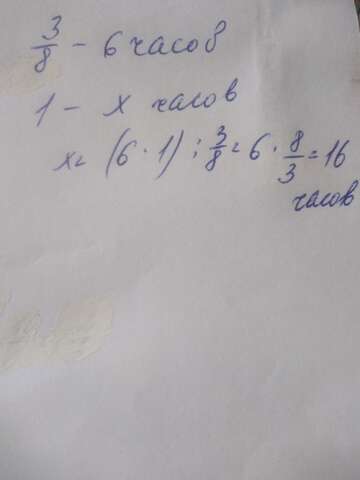 3/8 - 6 часов
1 - x часов
x = (6 · 1) : 3/8 = 6 · 8/3 = 16
часов